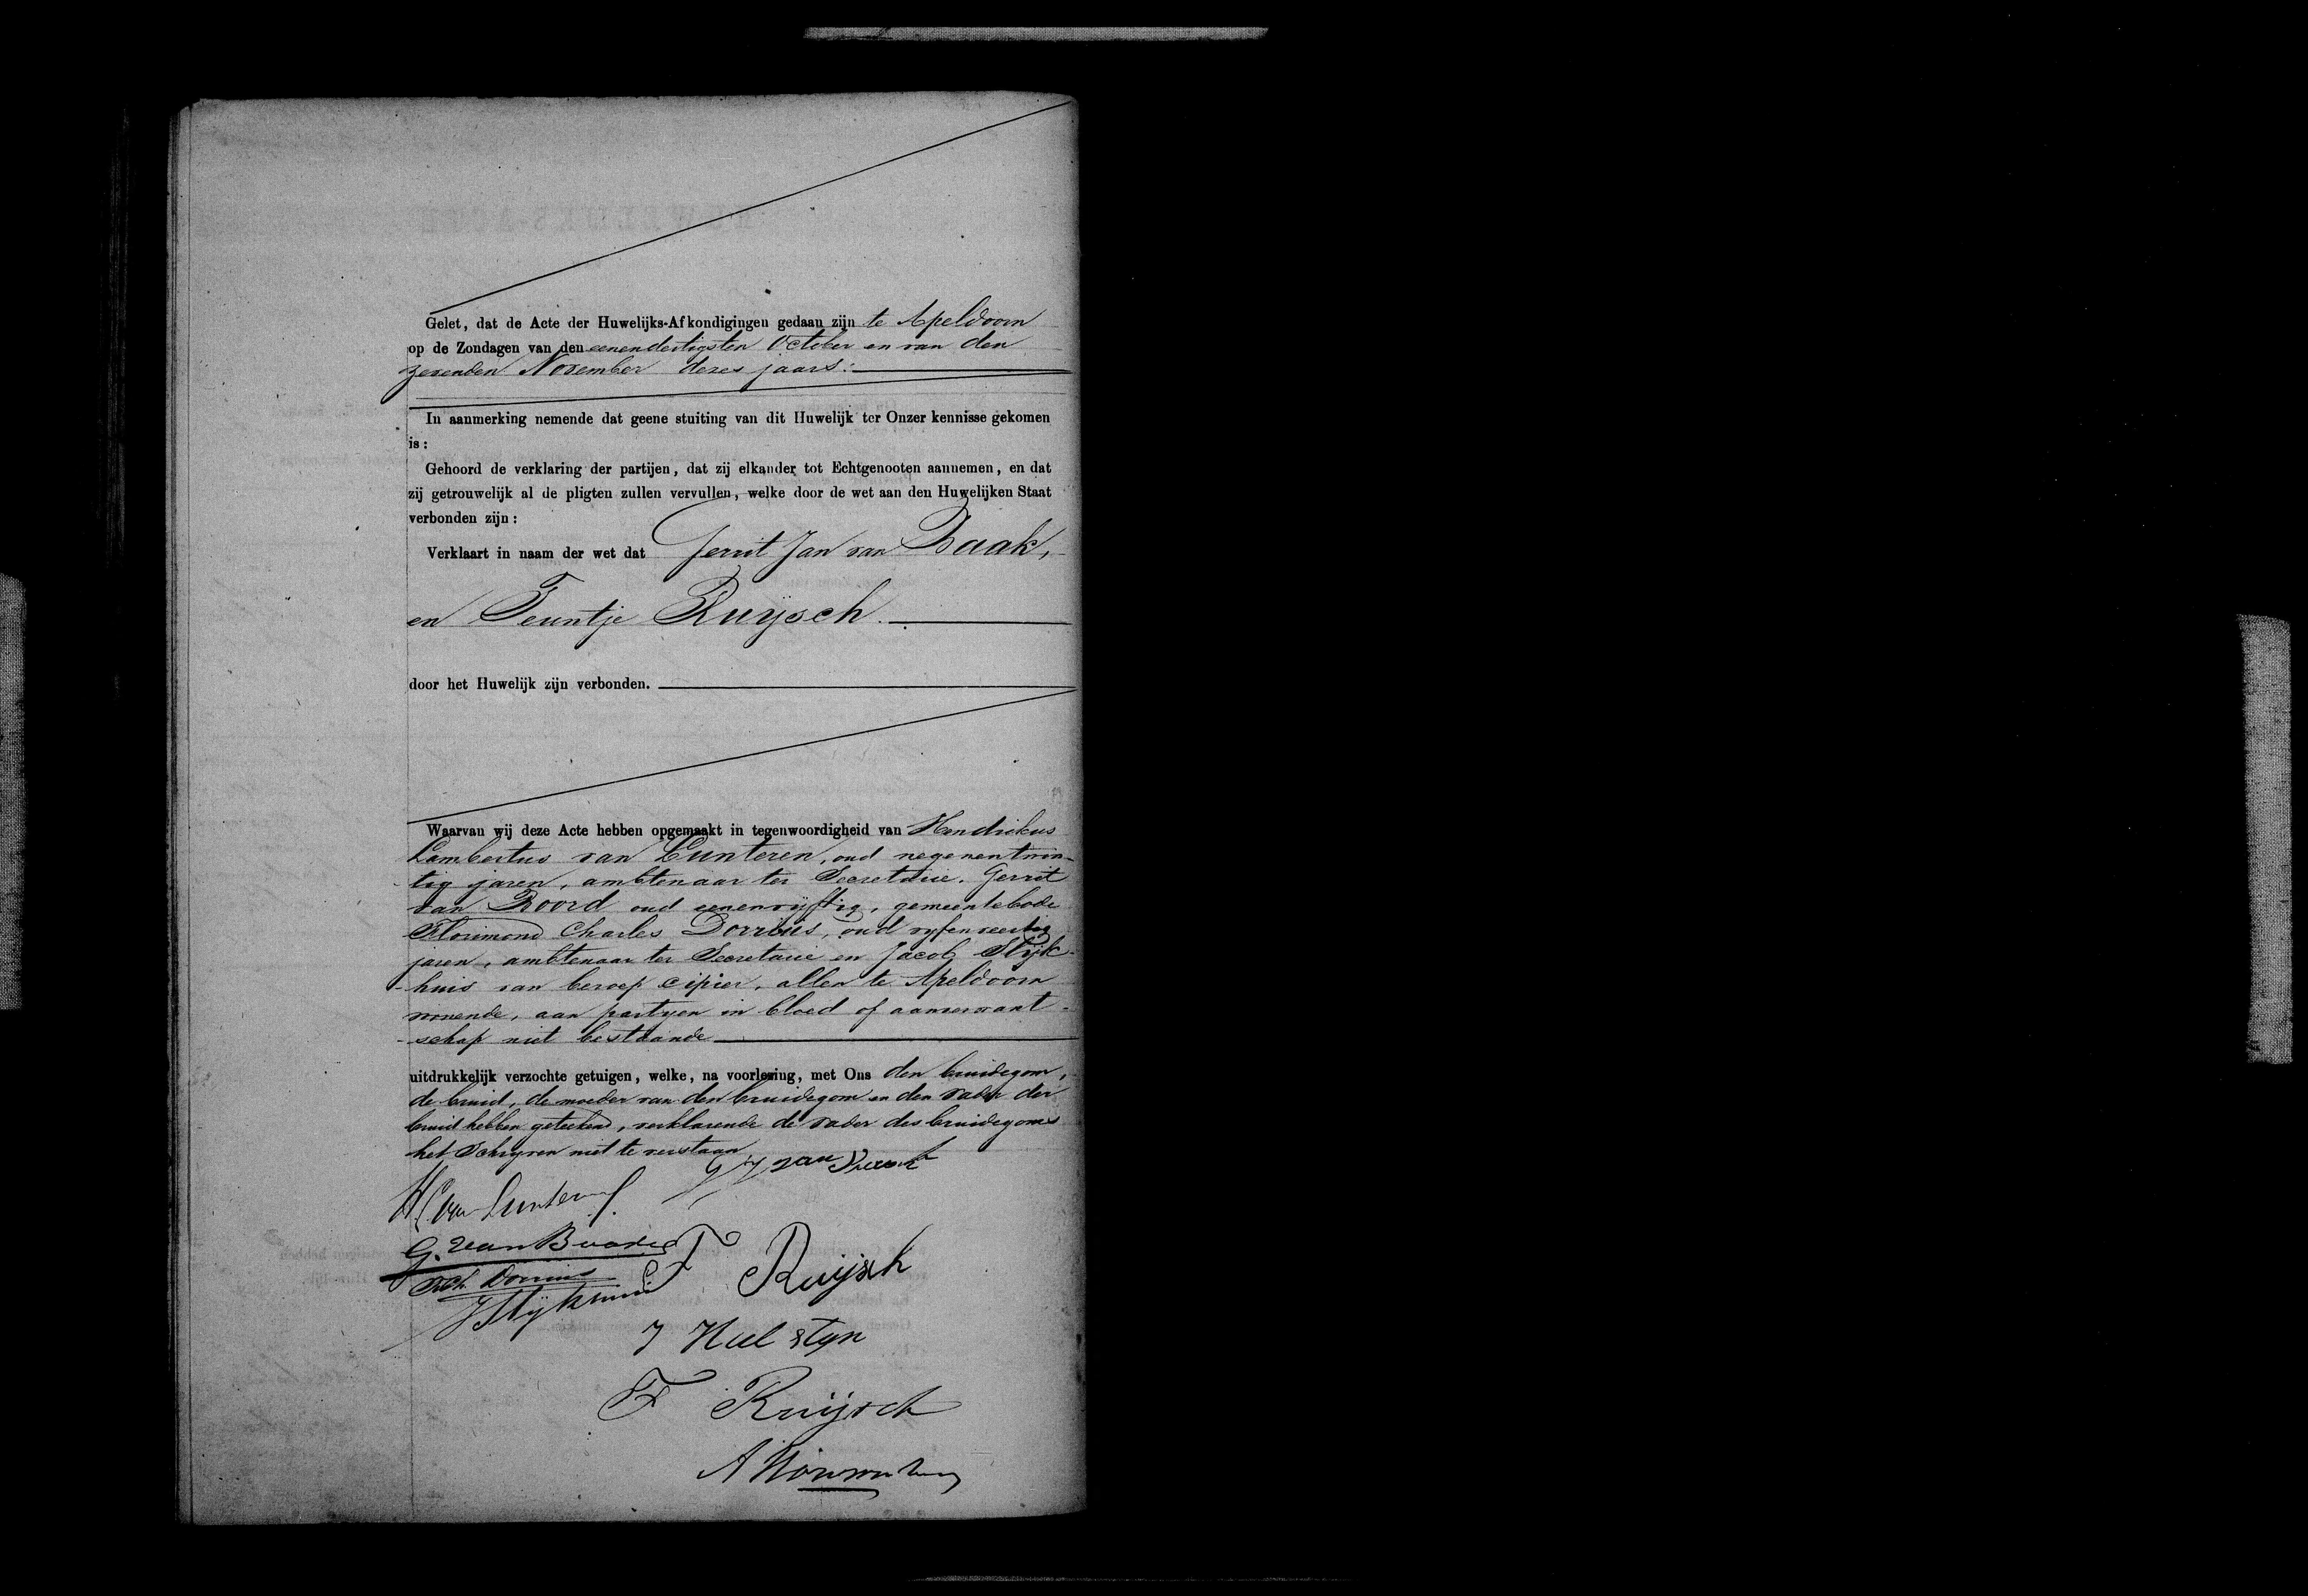 Gelet, dat de Acte der Huwelijks-Afkondigingen gedaan zijn te Apeldoorn
op de Zondagen van den eenendertigsten October en van den
zevenden November dezes jaars:
In aanmerking nemende dat geene stuiting van dit Huwelijk ter Onzer kennisse gekomen
is:
Gehoord de verklaring der partijen, dat zij elkander tot Echtgenooten aannemen, en dat
zij getrouwelijk al de pligten zullen vervullen, welke door de wet aan den Huwelijken Staat
verbonden zijn:
Verklaart in naam der wet dat Gerrit Jan van Baak,
en Teuntje Ruijsch.
door het Huwelijk zijn verbonden.
Waarvan wij deze Acte hebben opgemaakt in tegenwoordigheid van Hendrikus
Lambertus van Lunteren, oud negenentwin-
tig jaren, ambtenaar ter Secretarie. Gerrit
van Boord oud eenenvijftig, gemeentebode
Florimond Charles Dorrius, oud vyfenveertig
jaren, ambtenaar ter Secretarie en Jacob Slijk-
-huis van beroep cipier, allen te Apeldoorn
wonende, aan partyen in bloed of aanverwant-
-schap niet bestaande
uitdrukkelijk verzochte getuigen, welke, na voorlezing, met Ons den bruidegom,
de bruid, de moeder van den bruidegom en den vader der
bruid hebben geteekend, verklarende de vader des bruidegoms
het schryven niet te verstaan
G J van Baak
H L van Lunteren
G. van Boord
F Ch Dorrius
T Ruijsch
J Slijkhuis
J Hulstyn
F Ruijsch